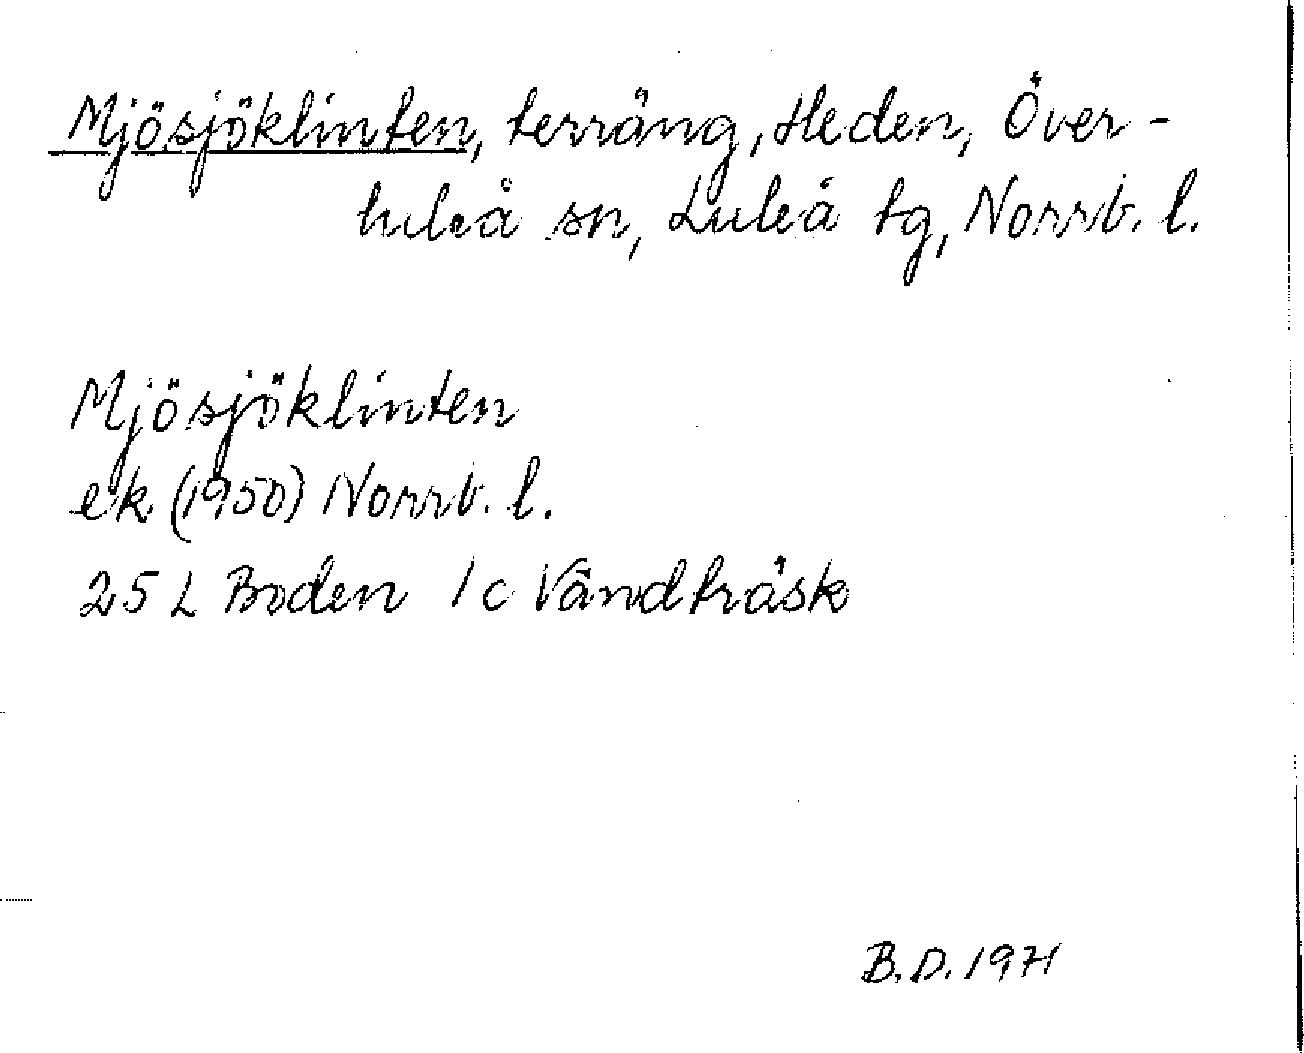 Mjösjöklinten, terräng, Heden, Över-
luleå sn, Luleå tg, Norrb. l.
Mjösjöklinten
ek (1950) Norrb. l.
25 L Boden 1 c Vändträsk
B.D. 1971